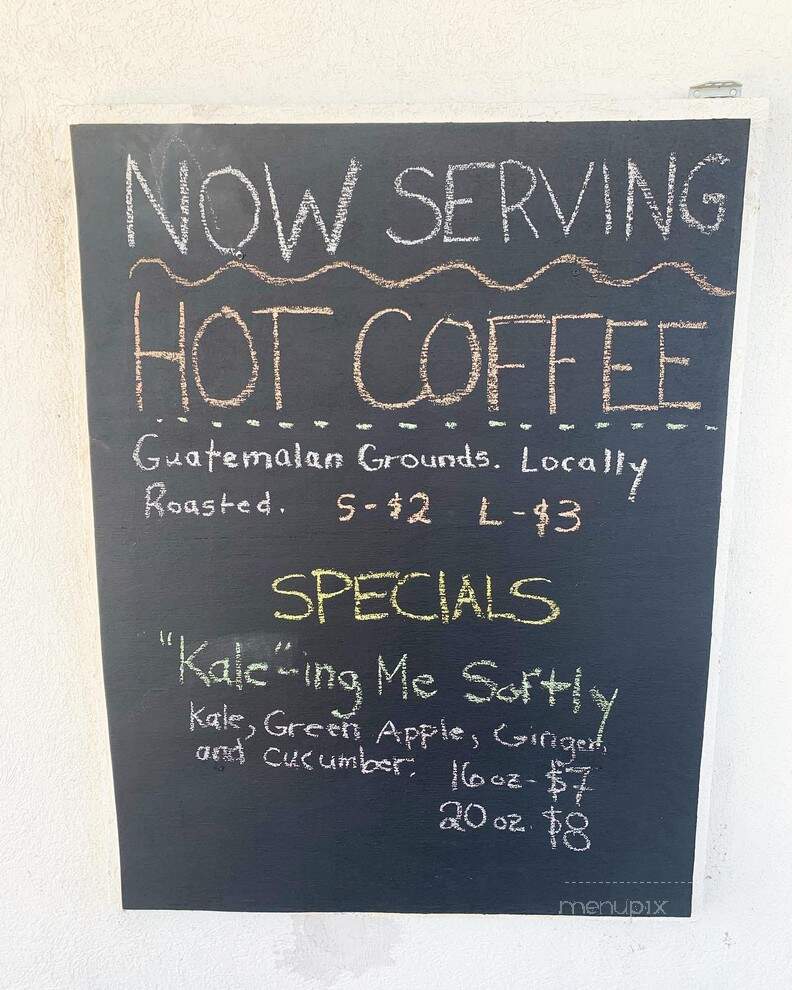 NOW SERVING
HOT COFFEE
Guatemalan Grounds. Locally
Roasted. S-$2 L-$3
SPECIALS
"Kale"-ing Me Softly
Kale, Green Apple, Ginger,
and cucumber. 16 oz - $7
20 oz. $8
menupix